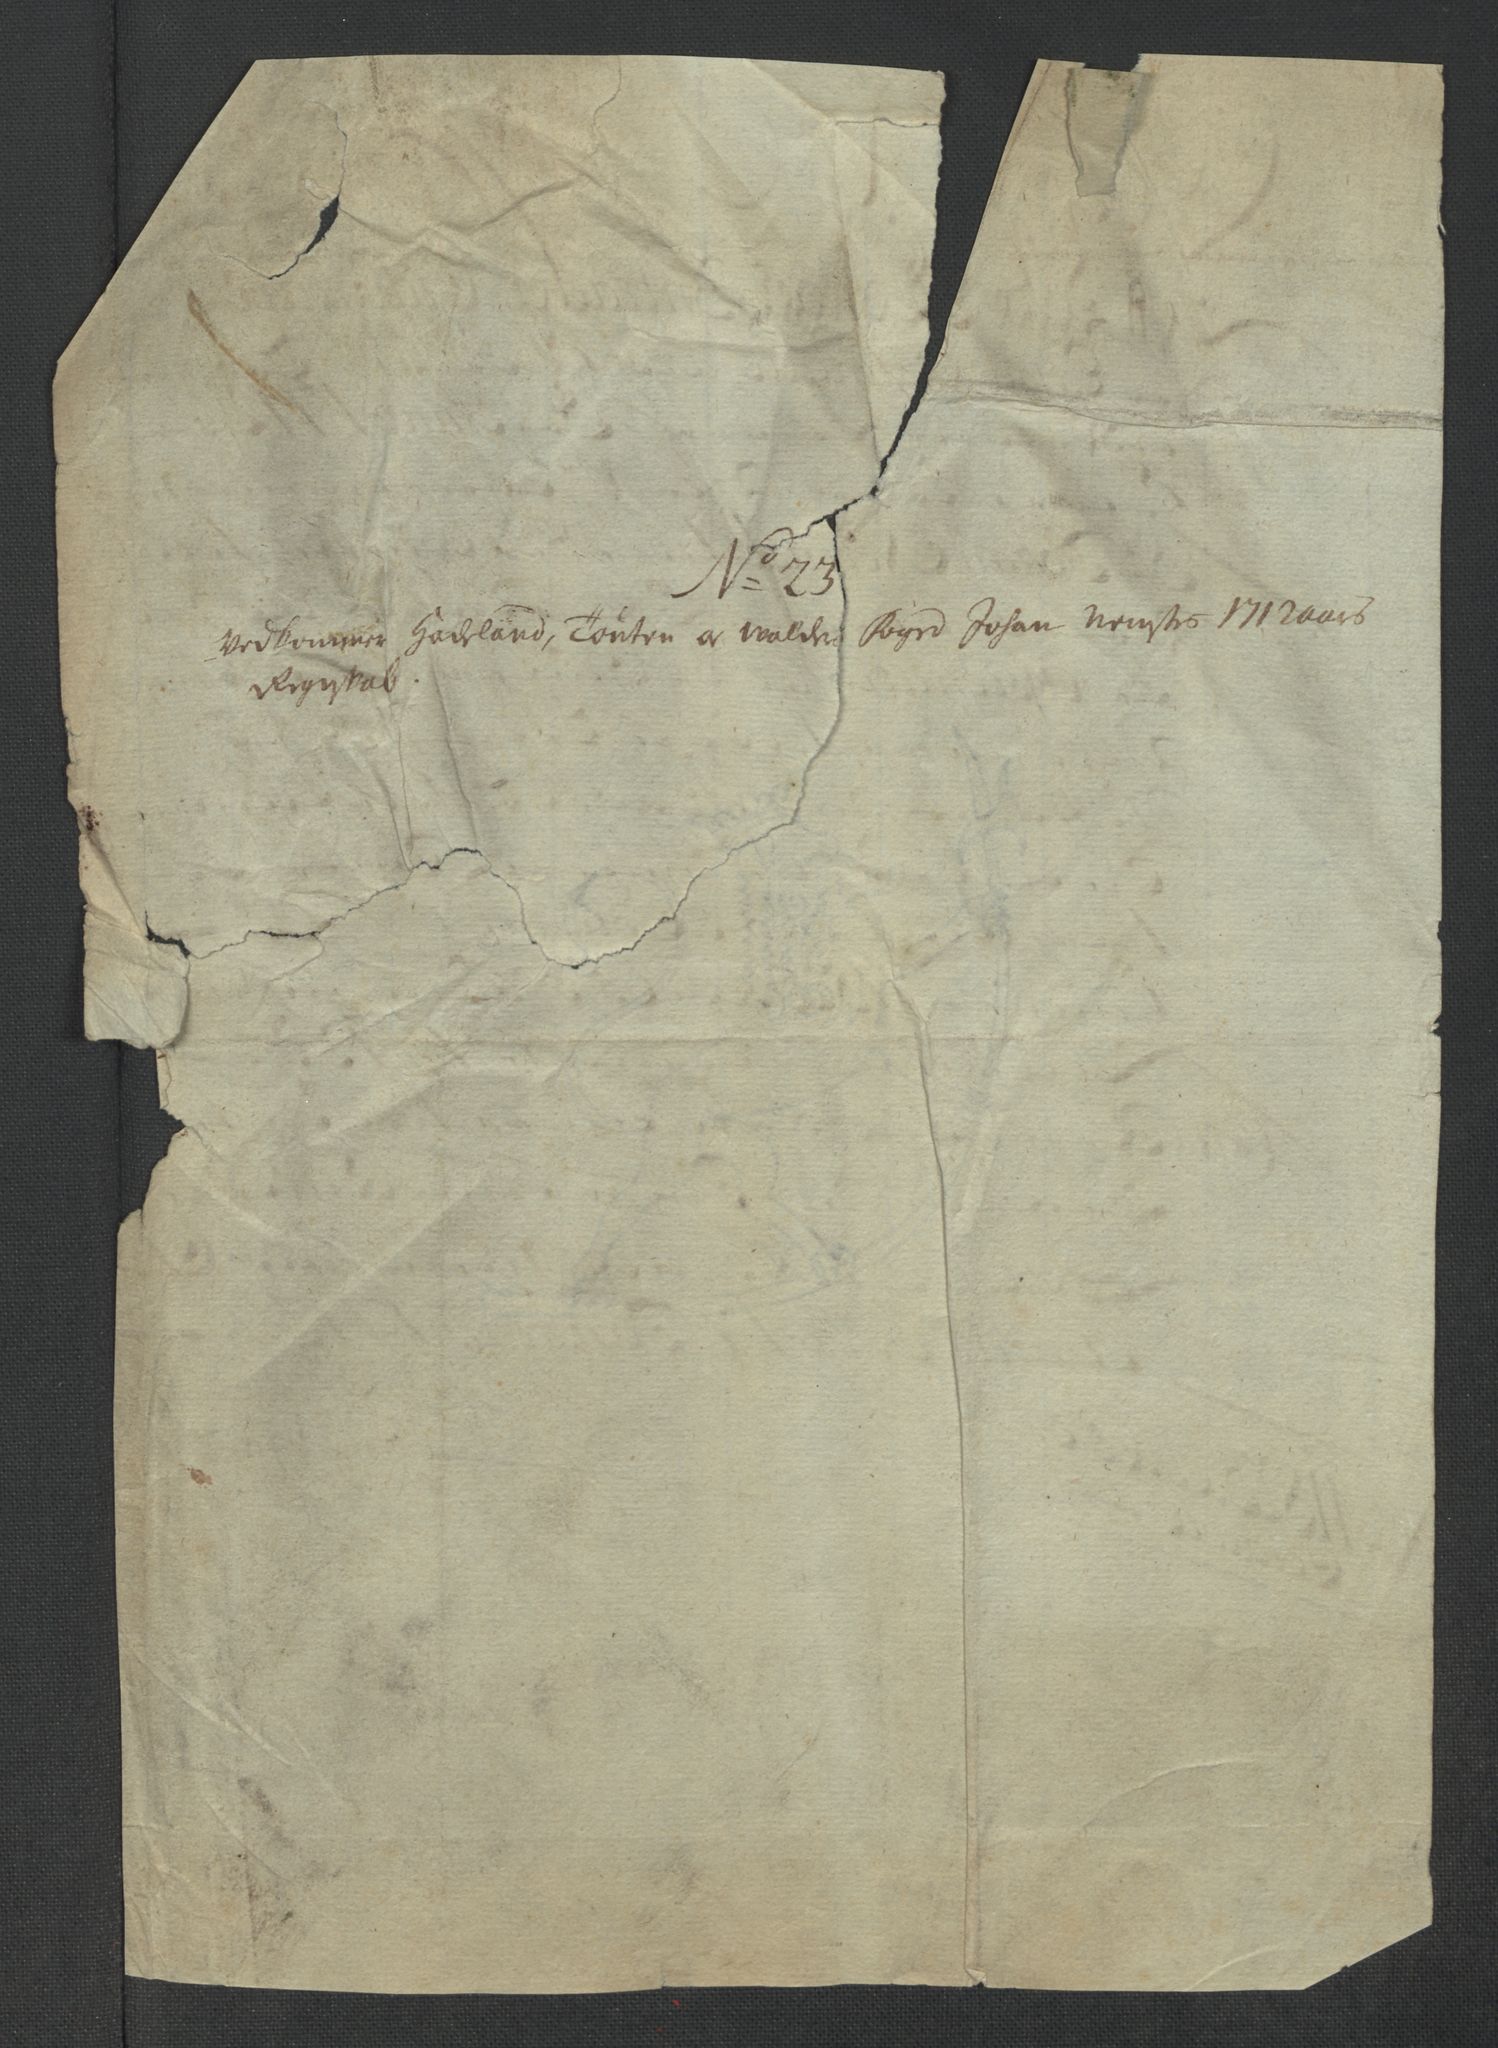 No 23
Vedkommer Hadeland, Touten og Walders Foged Johan 1712 aars
Regnskab.